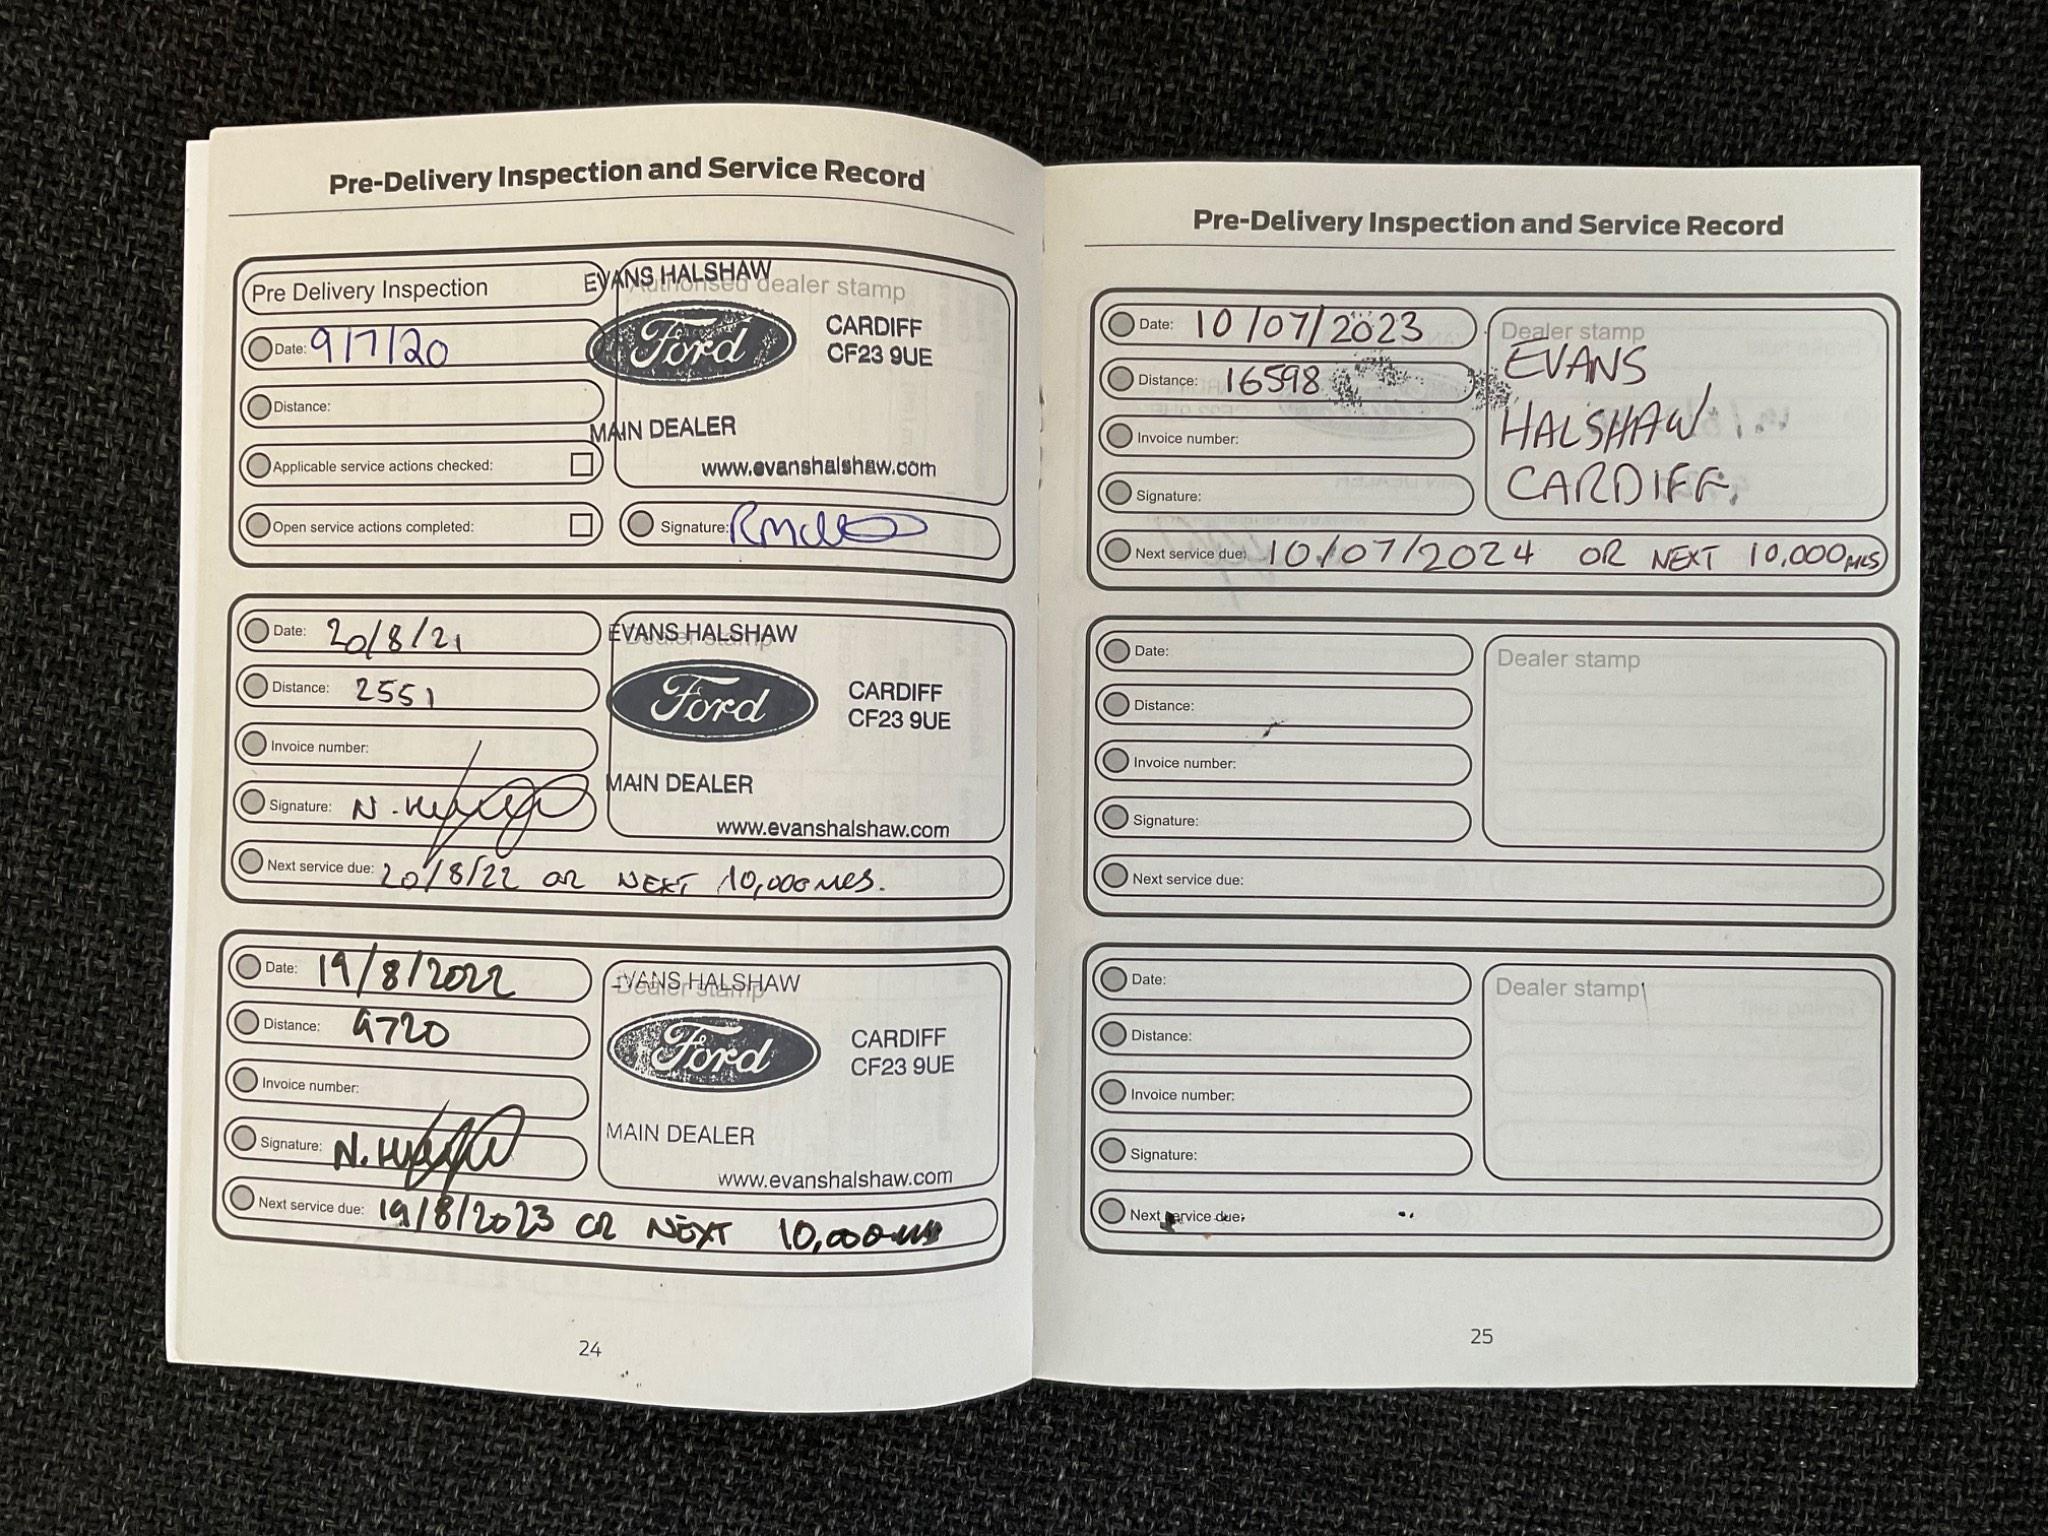 Pre-Delivery Inspection and Service Record
Pre Delivery Inspection
Date: 9/7/20
Distance:
Applicable service actions checked:
Open service actions completed:
Authorised dealer stamp
EVANS HALSHAW
Ford
CARDIFF
CF23 9UE
MAIN DEALER
www.evanshalshaw.com
Signature:
Date: 20/8/21
Distance: 2551
Invoice number:
Signature: N.
Dealer stamp
EVANS HALSHAW
Ford
CARDIFF
CF23 9UE
MAIN DEALER
www.evanshalshaw.com
Next service due: 20/8/22 OR NEXT 10,000 MLS.
Date: 19/8/2022
Distance: 9720
Invoice number:
Signature: N.
Dealer stamp
EVANS HALSHAW
Ford
CARDIFF
CF23 9UE
MAIN DEALER
www.evanshalshaw.com
Next service due: 19/8/2023 OR NEXT 10,000
24
Pre-Delivery Inspection and Service Record
Date: 10/07/2023
Distance: 16598
Invoice number:
Signature:
Dealer stamp
EVANS
HALSHAW
CARDIFF.
Next service due: 10/07/2024 OR NEXT 10,000 MLS
Date:
Distance:
Invoice number:
Signature:
Dealer stamp
Next service due:
Date:
Distance:
Invoice number:
Signature:
Dealer stamp
Next service due:
25